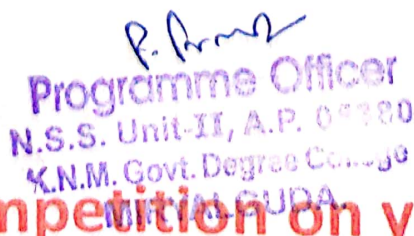 Programme Officer
N.S.S. Unit-II, A.P.
K.N.M. Govt. Degree
MIRYALGUDA.
mpetition on v